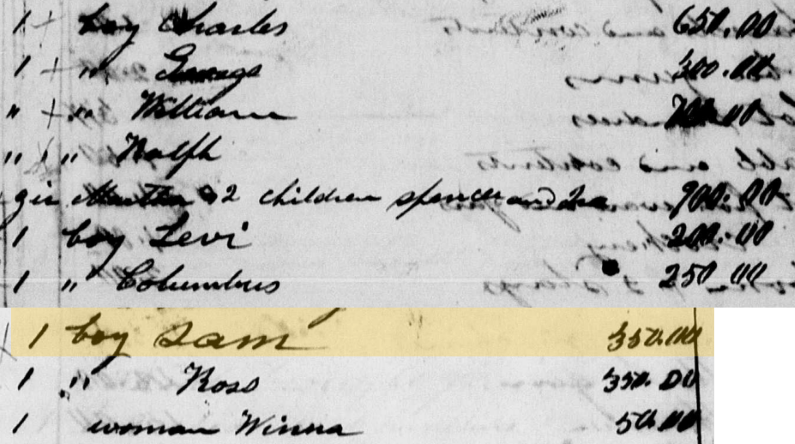 1 + boy Charles 650.00
1 + " George 300.00
" + " William 700.00
" + " Ralph
gir Martha & 2 children spencer and Ira 900.00
1 boy Levi 200.00
1 " Columbus 250.00
1 boy Sam 350.00
1 " Ross 350.00
1 woman Winna 50.00